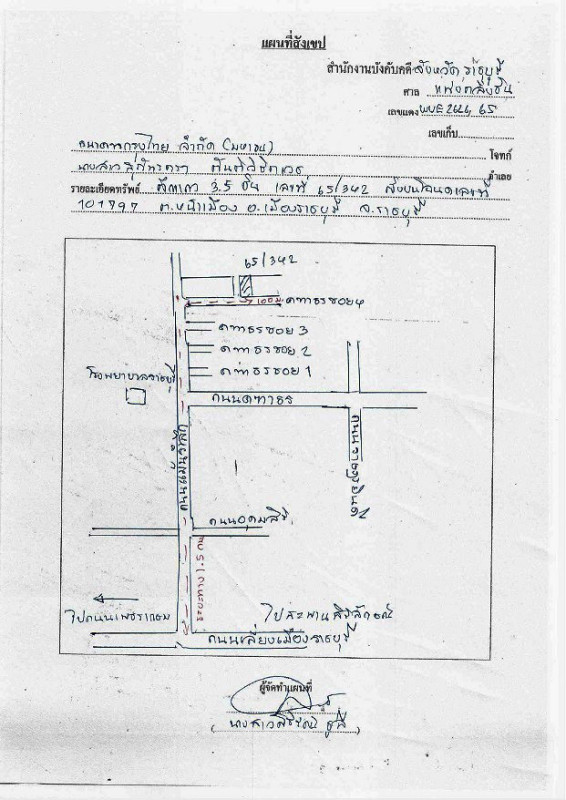 แผนที่สังเขป
สำนักงานบังคับคดีจังหวัดราชบุรี
ศาล แพ่งตลิ่งชัน
เลขแดง ผบE 65
เลขเก็บ
ธนาคารกรุงไทย จำกัด (มหาชน) โจทก์
นางสาว จำเลย
รายละเอียดทรัพย์ ตึกแถว 3.5 ชั้น เลขที่ 65/342 ตั้งบนโฉนดเลขที่
101797 ต.หน้าเมือง อ.เมืองราชบุรี จ.ราชบุรี
65/342
100 ม. คฑาธรซอย 4
คฑาธรซอย 3
คฑาธรซอย 2
คฑาธรซอย 1
โรงพยาบาลราชบุรี
ถนนคฑาธร
ถนนแม้นรำลึก
ถนนราษฎรยินดี
ถนนอุดมสิริ
ระยะทาง
ไปถนนเพชรเกษม
ไปสะพานสิริลักขณ์
ถนนเลี่ยงเมืองราชบุรี
ผู้จัดทำแผนที่
นางสาว